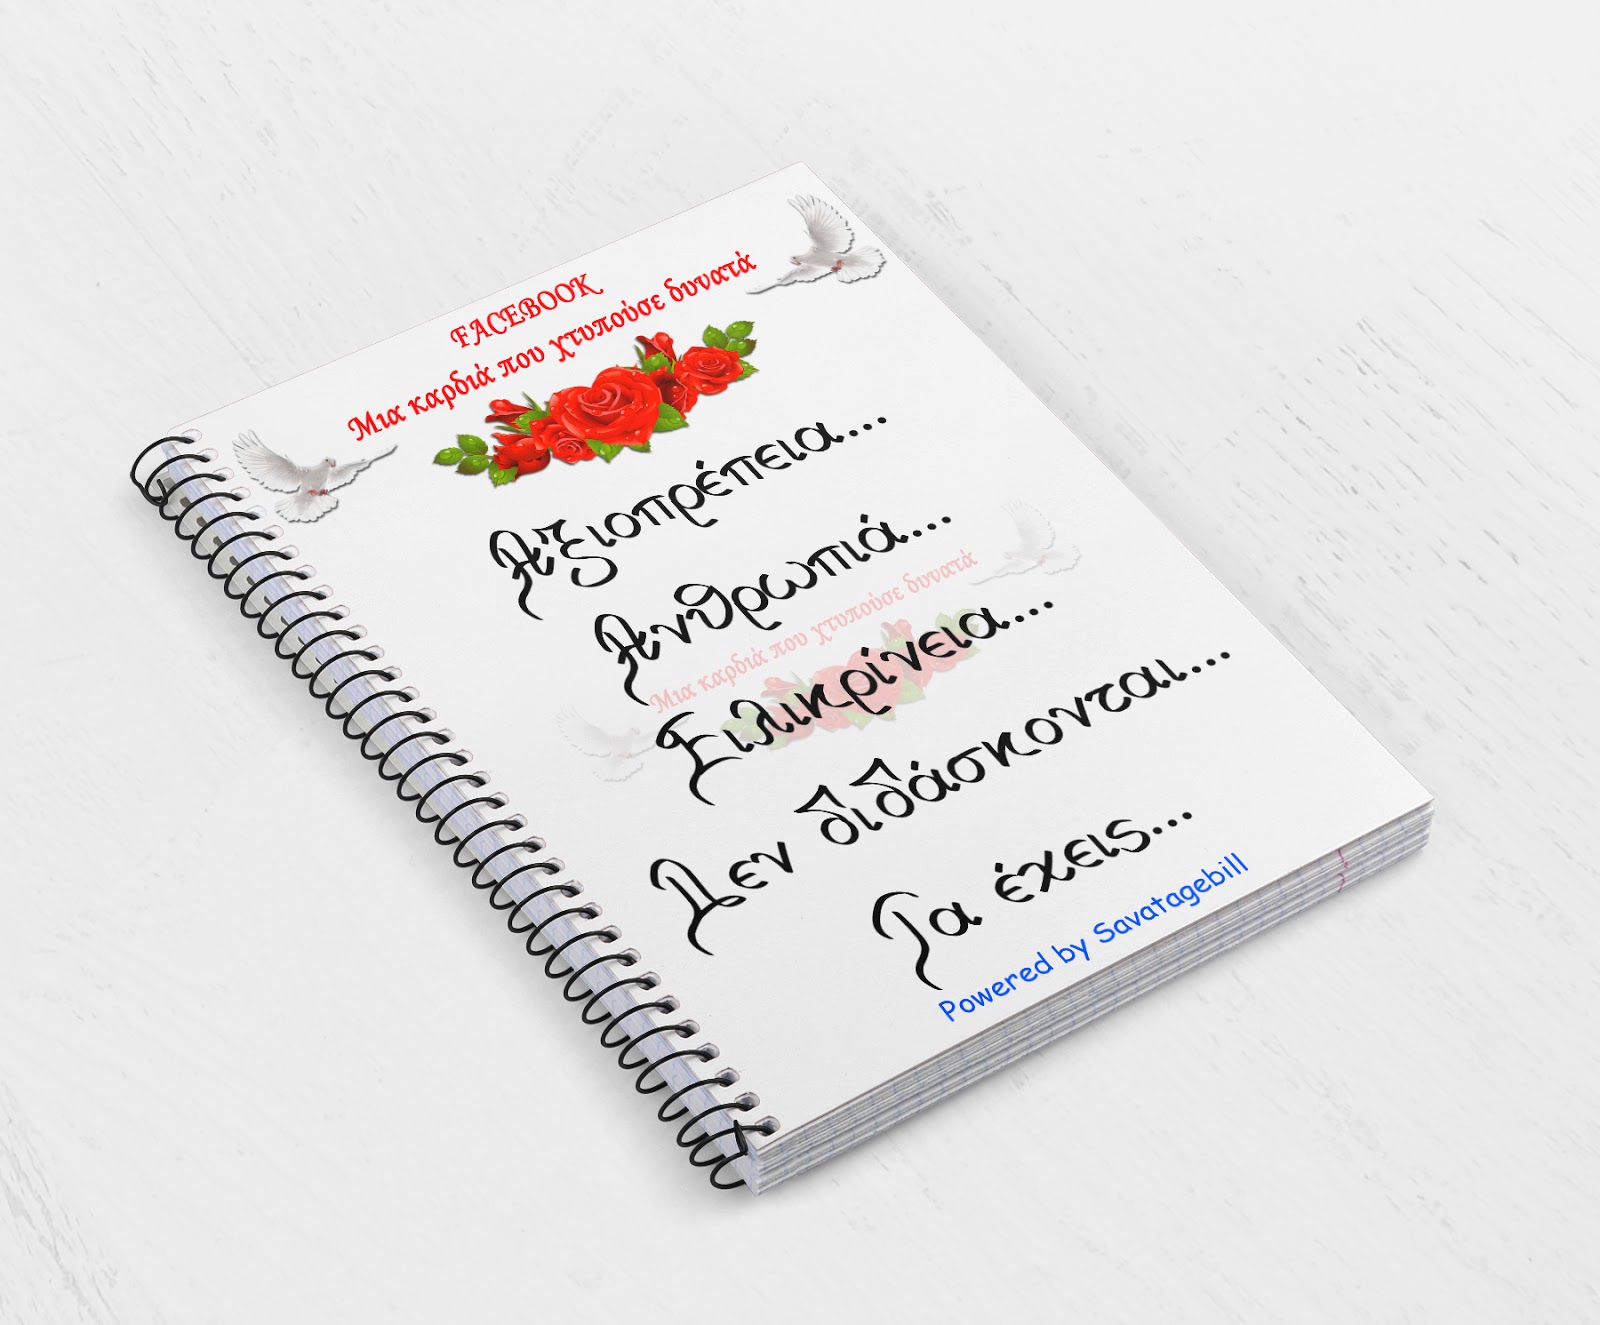 FACEBOOK
Μια καρδιά που χτυπούσε δυνατά
Αξιοπρέπεια...
Ανθρωπιά...
Μια καρδιά που χτυπούσε δυνατά
Ειλικρίνεια...
Δεν διδάσκονται...
Τα έχεις...
Powered by Savatagebill